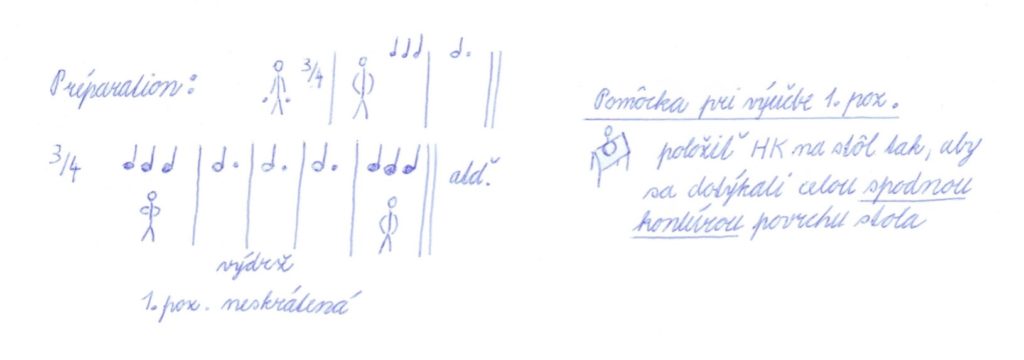 Préparation: 3/4
3/4 atď.
výdrž
1. poz. neskrátená
Pomôcka pri výučbe 1. poz.
položiť HK na stôl tak, aby
sa dotýkali celou spodnou
kontúrou povrchu stola